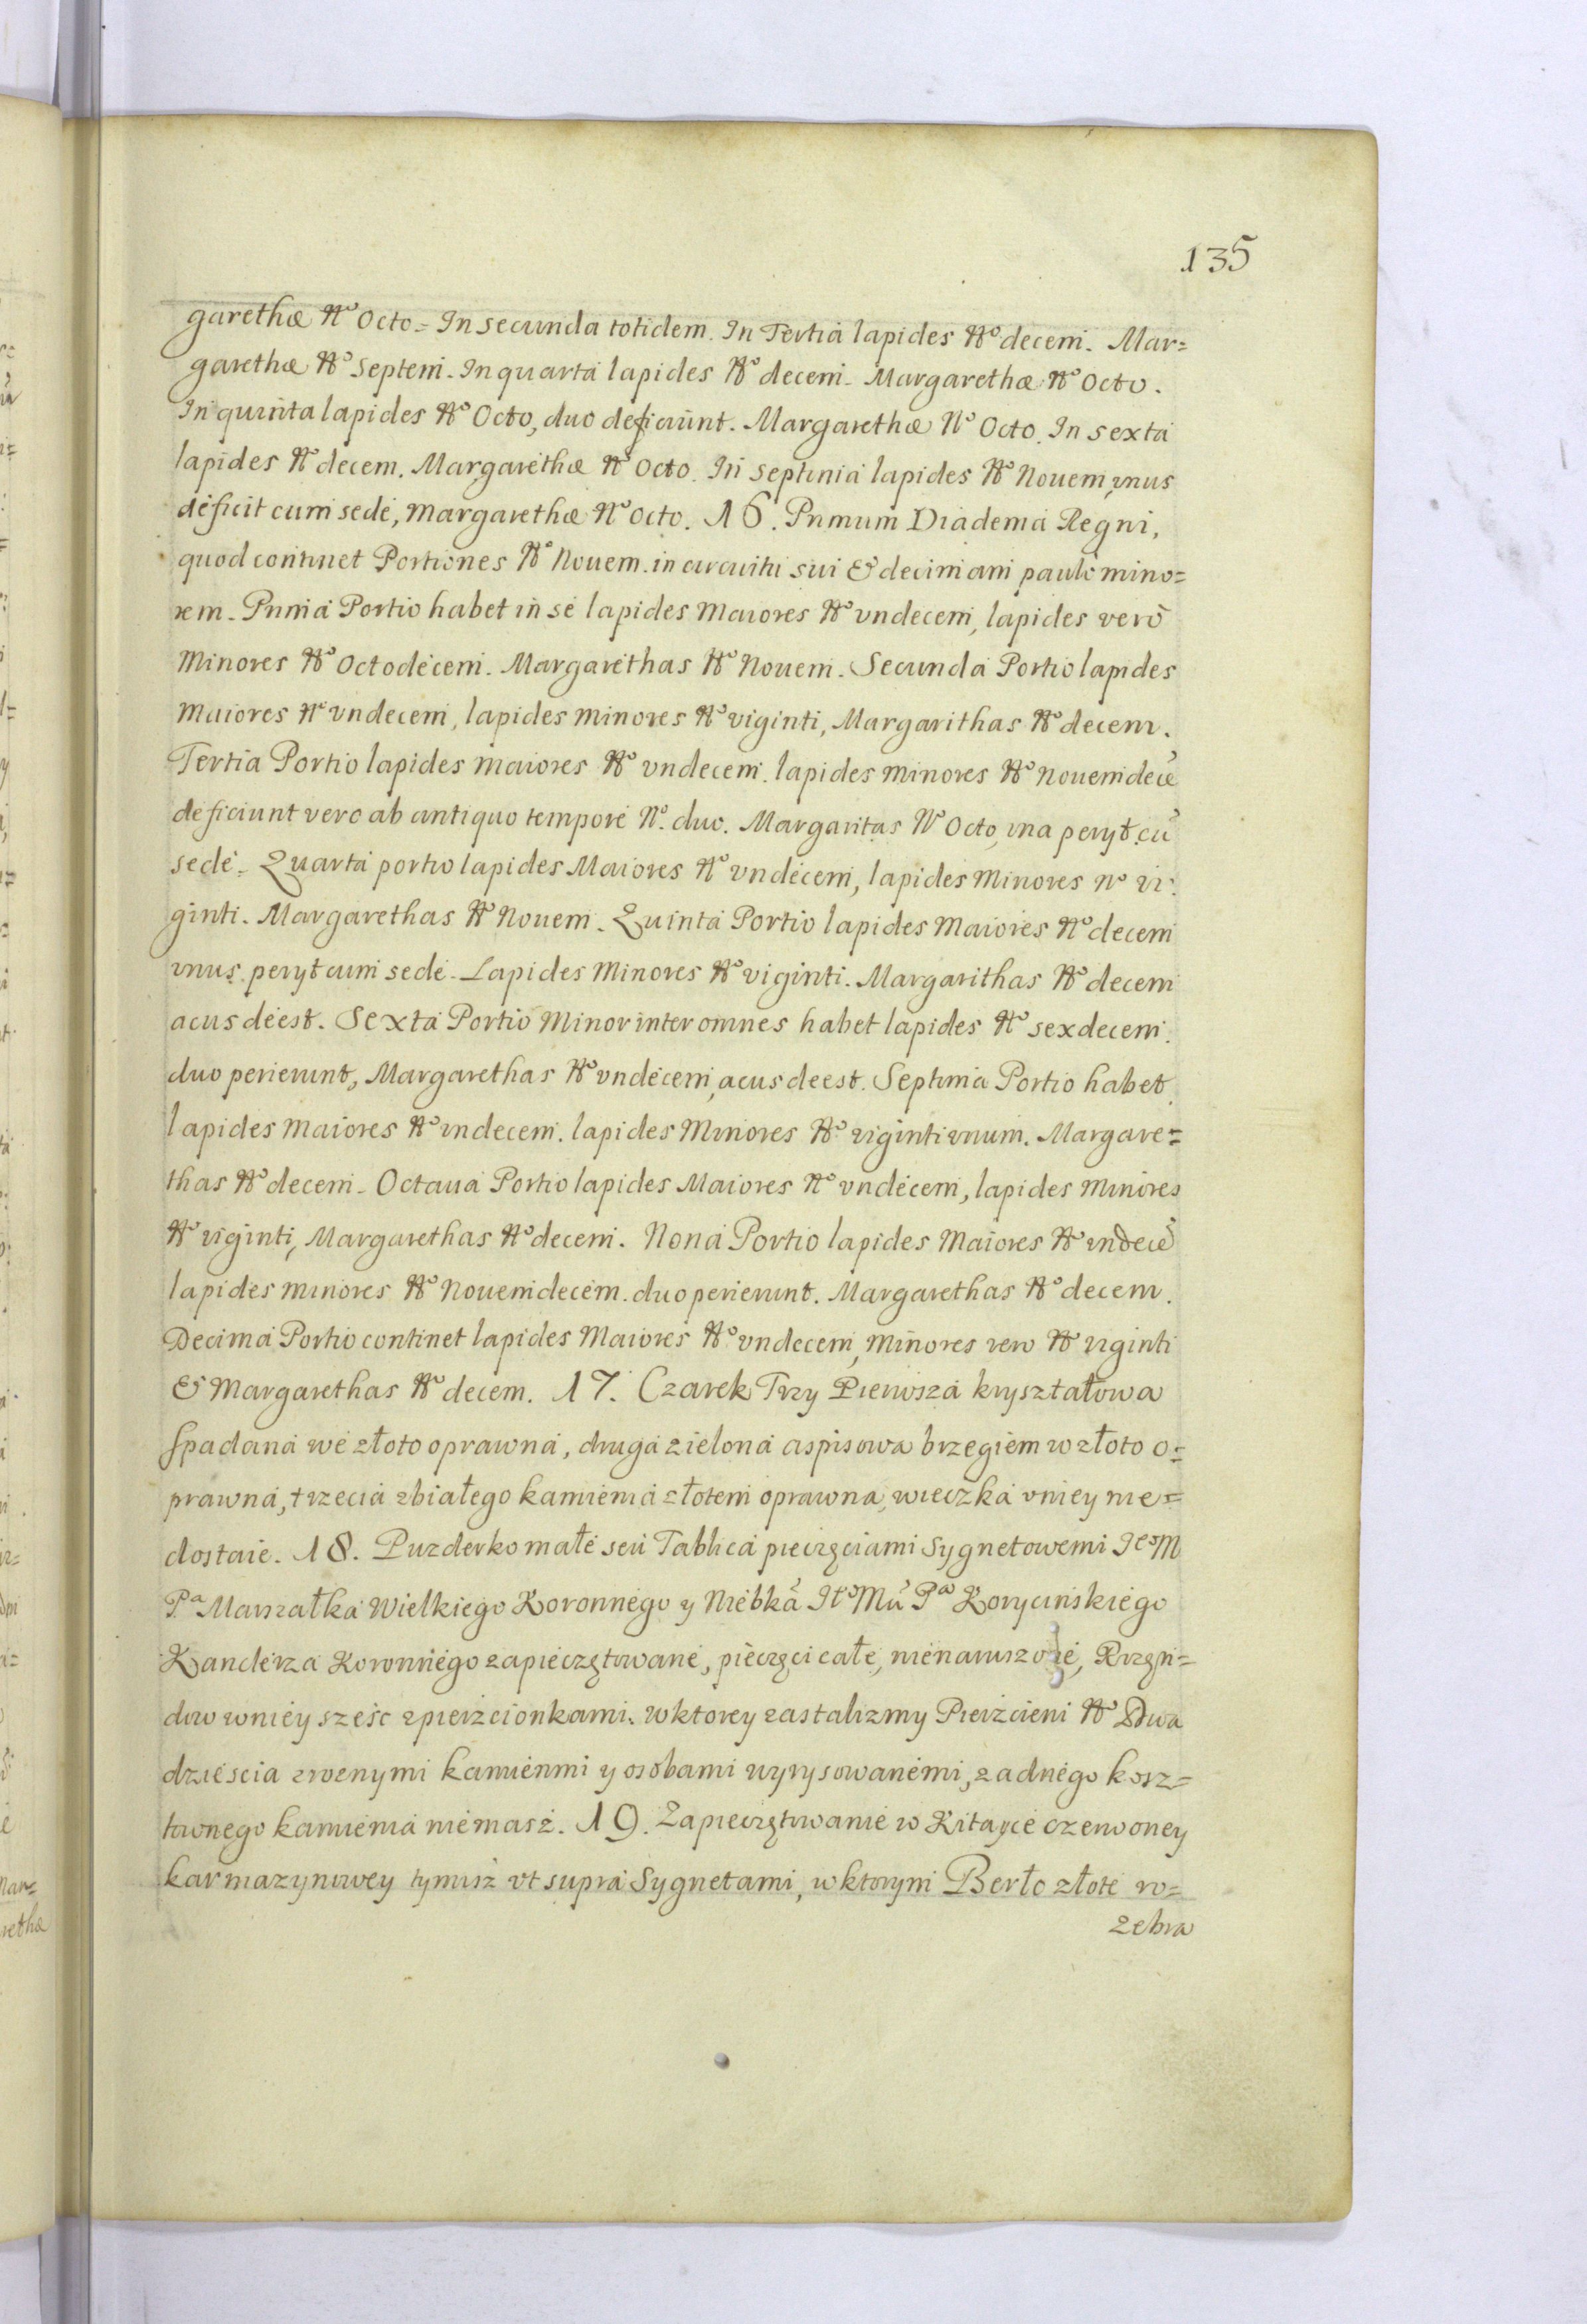 135
garethæ No Octo = In secunda totidem. In Tertia lapides No decem. Mar=
garethæ No Septem. In quarta lapides No decem. Margarethæ No Octo.
In quinta lapides No Octo, duo deficiunt. Margarethæ No Octo. In sexta
lapides No decem. Margarethæ No Octo. In septima lapides No Nouem, vnus
deficit cum sede, Margarethæ No Octo. 16. Primum Diadema Regni,
quod continet Portiones No Nouem. in circuitu sui & decimam paulo mino=
rem. Prima Portio habet in se lapides Maiores No vndecem, lapides verò
Minores No Octodecem. Margarethas No Nouem. Secunda Portio lapides
Maiores No vndecem, lapides minores No viginti, Margarithas No decem.
Tertia Portio lapides maiores No vndecem. lapides minores No Nouemdecẽ
deficiunt vero ab antiquo tempore No. duo. Margaritas No Octo, vna peryt cũ
sede. Quarta portio lapides Maiores No vndecem, lapides Minores No vi:
ginti. Margarethas No Nouem. Quinta Portio lapides Maiores No decem
vnus peryt cum sede. Lapides Minores No viginti. Margarithas No decem
acus deest. Sexta Portio Minor inter omnes habet lapides No sexdecem.
duo perierunt, Margarethas No vndecem, acus deest. Septima Portio habet
lapides Maiores No vndecem. lapides Minores No viginti vnum. Margare=
thas No decem. Octaua Portio lapides Maiores No vndecem, lapides Minores
No viginti, Margarethas No decem. Nona Portio lapides Maiores No vndecẽ
lapides minores No Nouemdecem. duo perierunt. Margarethas No decem.
Decima Portio continet lapides Maiores No vndecem, Minores vero No viginti
& Margarethas No decem. 17. Czarek Trzy Pierwsza kryształowa
spadana we złoto oprawna, druga zielona aspisowa brzegiem w złoto o=
prawna, trzecia z białego kamienia złotem oprawna, wieczka v niey nie=
dostaie. 18. Puzderko małe seu Tablica pieczęciami Sygnetowemi JeoM
Pa Marszałka Wielkiego Koronnego y Niebka JeoMci Pa Korycinskiego
Kanclerza Koronnego zapieczętowane, pieczęci całe, nienaruszone, Rzęn=
dow w niey sześc z pierzcionkami. w ktorey zastalizmy Pierzcieni No Dwa
dziescia z roznymi kamienmi y osobami wyrysowanemi, zadnego kosz=
townego kamienia niemasz. 19. Zapieczętowanie w Kitayce czerwoney
karmazynowey tymisz vt supra Sygnetami, w ktorym Berło złote ro=
zebra